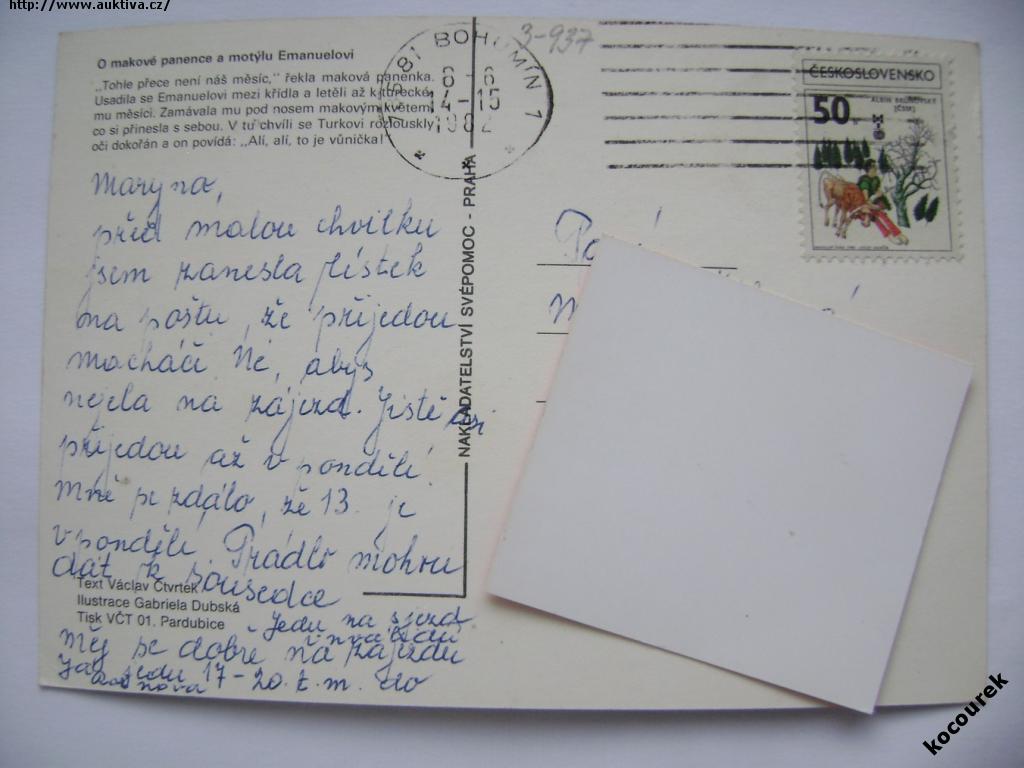 http://www.auktiva.cz/
O makové panence a motýlu Emanuelovi
„Tohle přece není náš měsíc,“ řekla maková panenka.
Usadila se Emanuelovi mezi křídla a letěli až k turecké-
mu měsíci. Zamávala mu pod nosem makovým květem,
co si přinesla s sebou. V tu chvíli se Turkovi rozlouskly
oči dokořán a on povídá: „Alí, alí, to je vůnička!“
Maryna,
před malou chvilku
jsem zanesla lístek
na poštu, že přijedou
macháči. Né, abys
nejela na zájezd. Jistě asi
přijedou až v pondělí!
Mně se zdálo, že 13. je
v pondělí. Prádlo mohou
dát k sousedce
Text Václav Čtvrtek
Ilustrace Gabriela Dubská
Tisk VČT 01. Pardubice
Jedu na sjezd
Měj se dobře na zájezdu
Já jedu 17-20.t.m. do
NAKLADATELSTVÍ SVÉPOMOC - PRAHA
3-937
735 81 BOHUMÍN 1
8-6
14-15
1982
ČESKOSLOVENSKO
50
ALBIN BRUNOVSKÝ
(ČSSR)
kocourek